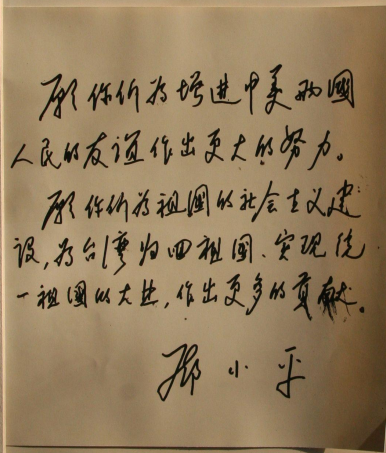 愿你们为增进中美两國
人民的友谊作出更大的努力。
愿你们为祖國的社会主义建
设,为台湾归回祖國、实现统
一祖國的大业,作出更多的貢献。
邓小平